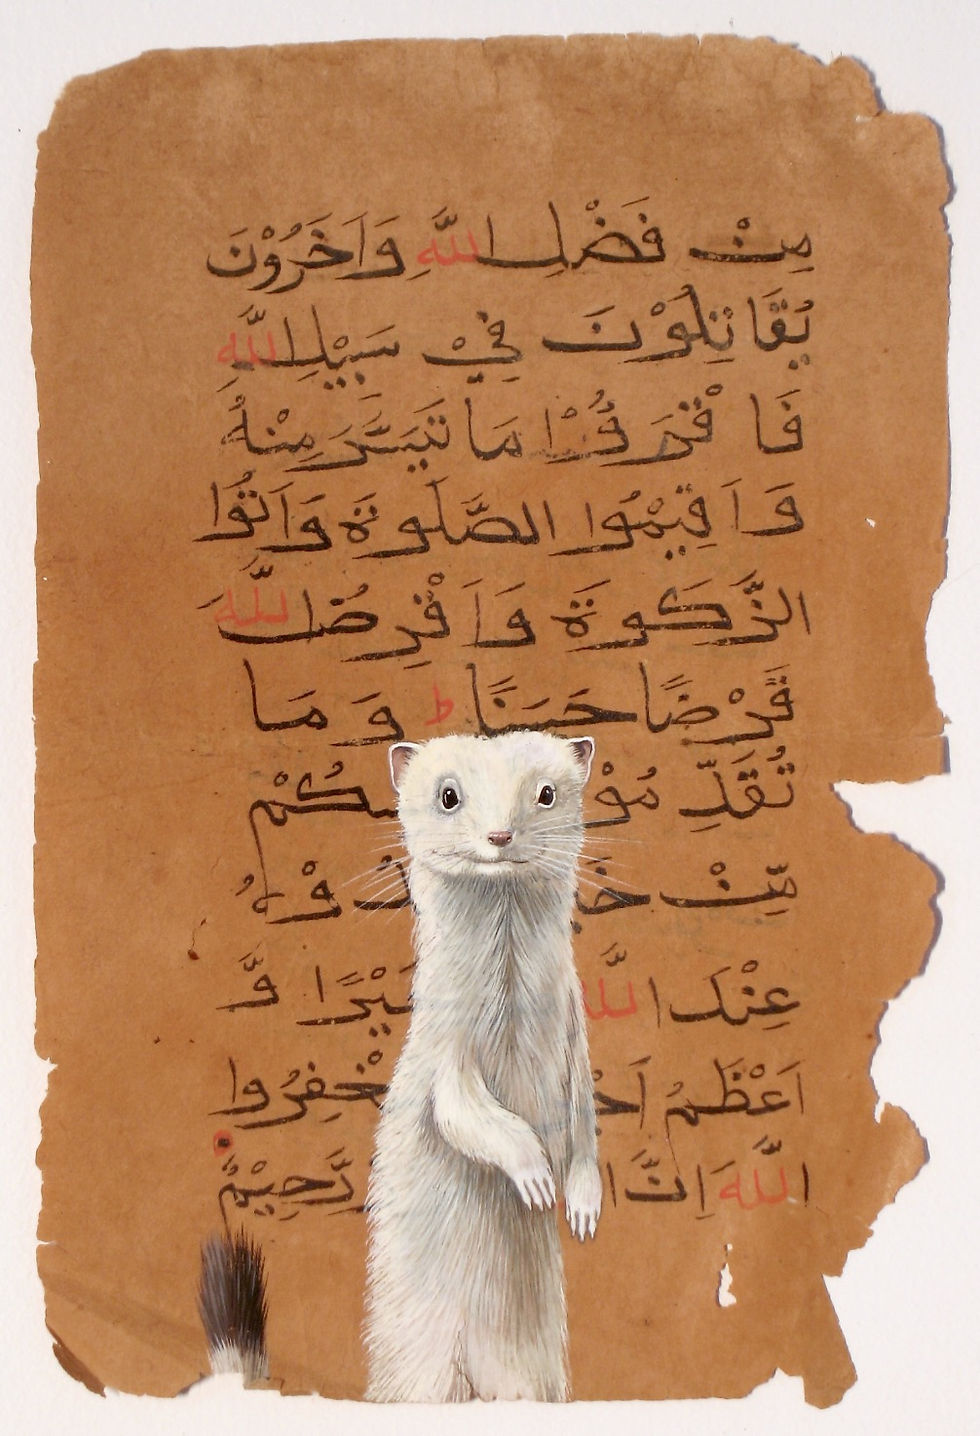 مِنْ فَضْلِ اللَّهِ وَاَخَرُوْنَ
يُقَاتِلُوْنَ فِيْ سَبِيْلِ اللَّهِ
فَاقْرَءُوْا مَا تَيَسَّرَ مِنْهُ
وَاَقِيْمُوا الصَّلَوةَ وَاَتُوا
الزَّكَوةَ وَاَقْرِضُوا اللَّهَ
قَرْضًا حَسَنًا ط وَمَا
تُقَدِّمُوْ سِكُمْ
مِّنْ خَ
عِنْدَ اللَّهِ يْرًا وَّ
اَعْظَمَ اَجْ غْفِرُوا
اللَّهَ اِنَّ ا رَّحِيْمٌ